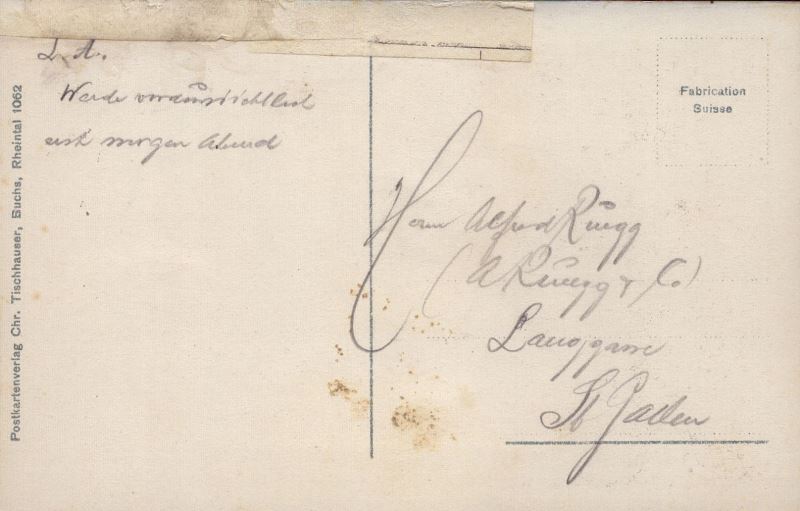 L. A.
Werde voraussichtlich
erst morgen Abend
Postkartenverlag Chr. Tischhauser, Buchs, Rheintal 1062
Fabrication
Suisse
Herrn Alfred Ruegg
(A Ruegg & Co)
Langgasse
St Gallen